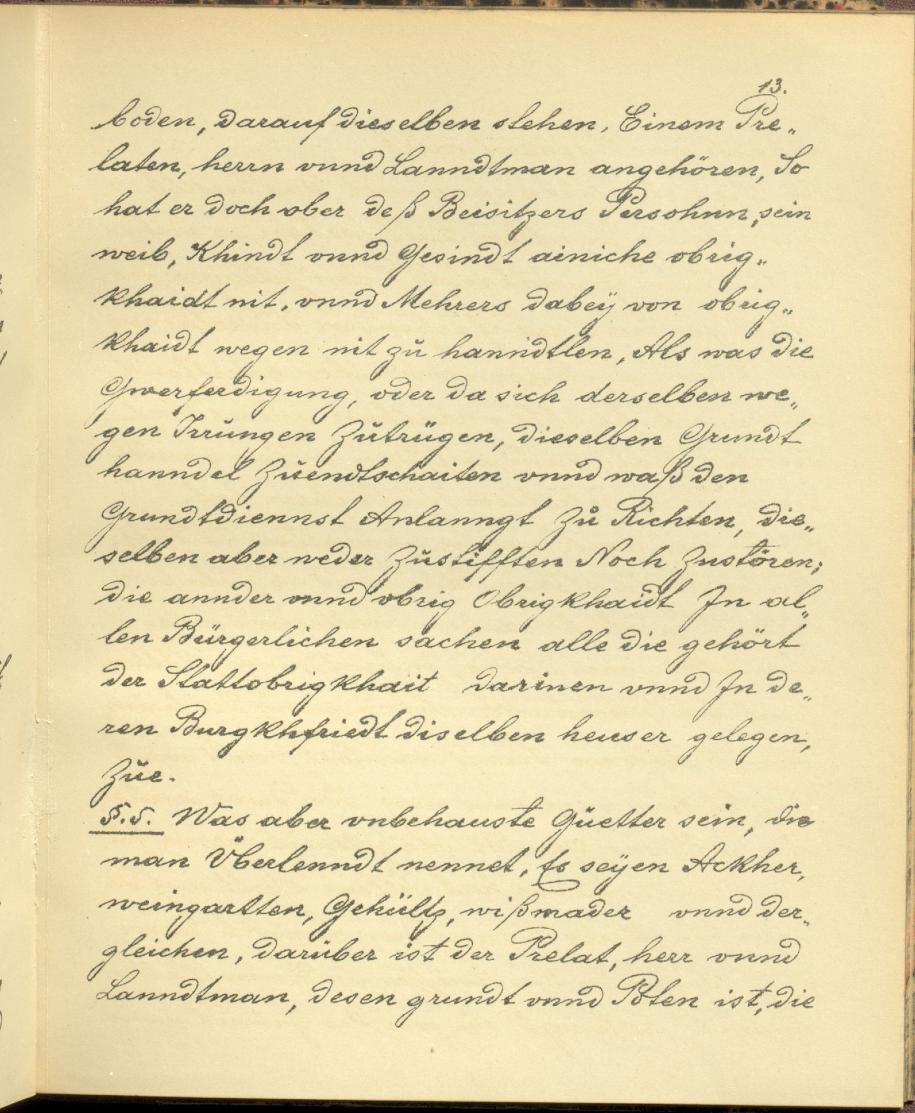 13.
boden, darauf dieselben stehen, Einem Pre„
laten, herrn vnnd Lanndtman angehören, So
hat er doch ober deß Beisitzers Persohnn, sein
weib, Khindt vnnd Gesindt ainiche obrig„
khaidt nit, vnnd Mehrers dabeÿ von obrig„
khaidt wegen nit zu hanndtlen, Als was die
Gwerferdigung, oder da sich derselben we„
gen Irrungen Zutrügen, dieselben Grundt
hanndel Zuendtschaiten vnnd waß den
Grundtdiennst Anlanngt zu Richten, die„
selben aber weder Zustifften Noch Zustören;
die annder vnnd obrig Obrigkhaidt In al„
len Bürgerlichen sachen alle die gehört
der Stattobrigkhait darinen vnnd In de„
ren Burgkhfriedt diselben heuser gelegen,
Zue.
§.5. Was aber vnbehauste Güetter sein, die
man Überlenndt nennet, Es seÿen Ackher,
weingartten, Gehültz, wißmader vnnd der„
gleichen, darüber ist der Prelat, herr vnnd
Lanndtman, desen grundt vnnd Poten ist, die